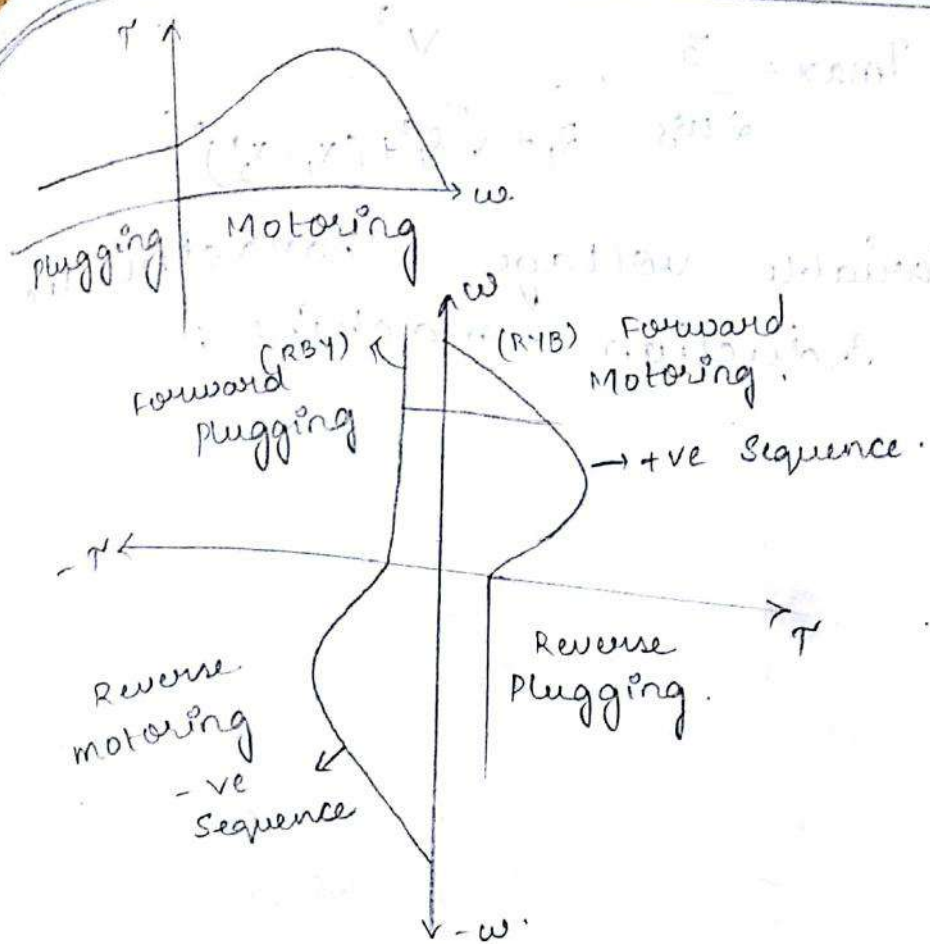 T
ω.
Plugging
Motoring
ω
(RBY)
(RYB)
Forward
Motoring.
Forward
Plugging
→ +ve Sequence.
-T
T
Reverse
Plugging.
Reverse
motoring
-ve
Sequence
-ω.